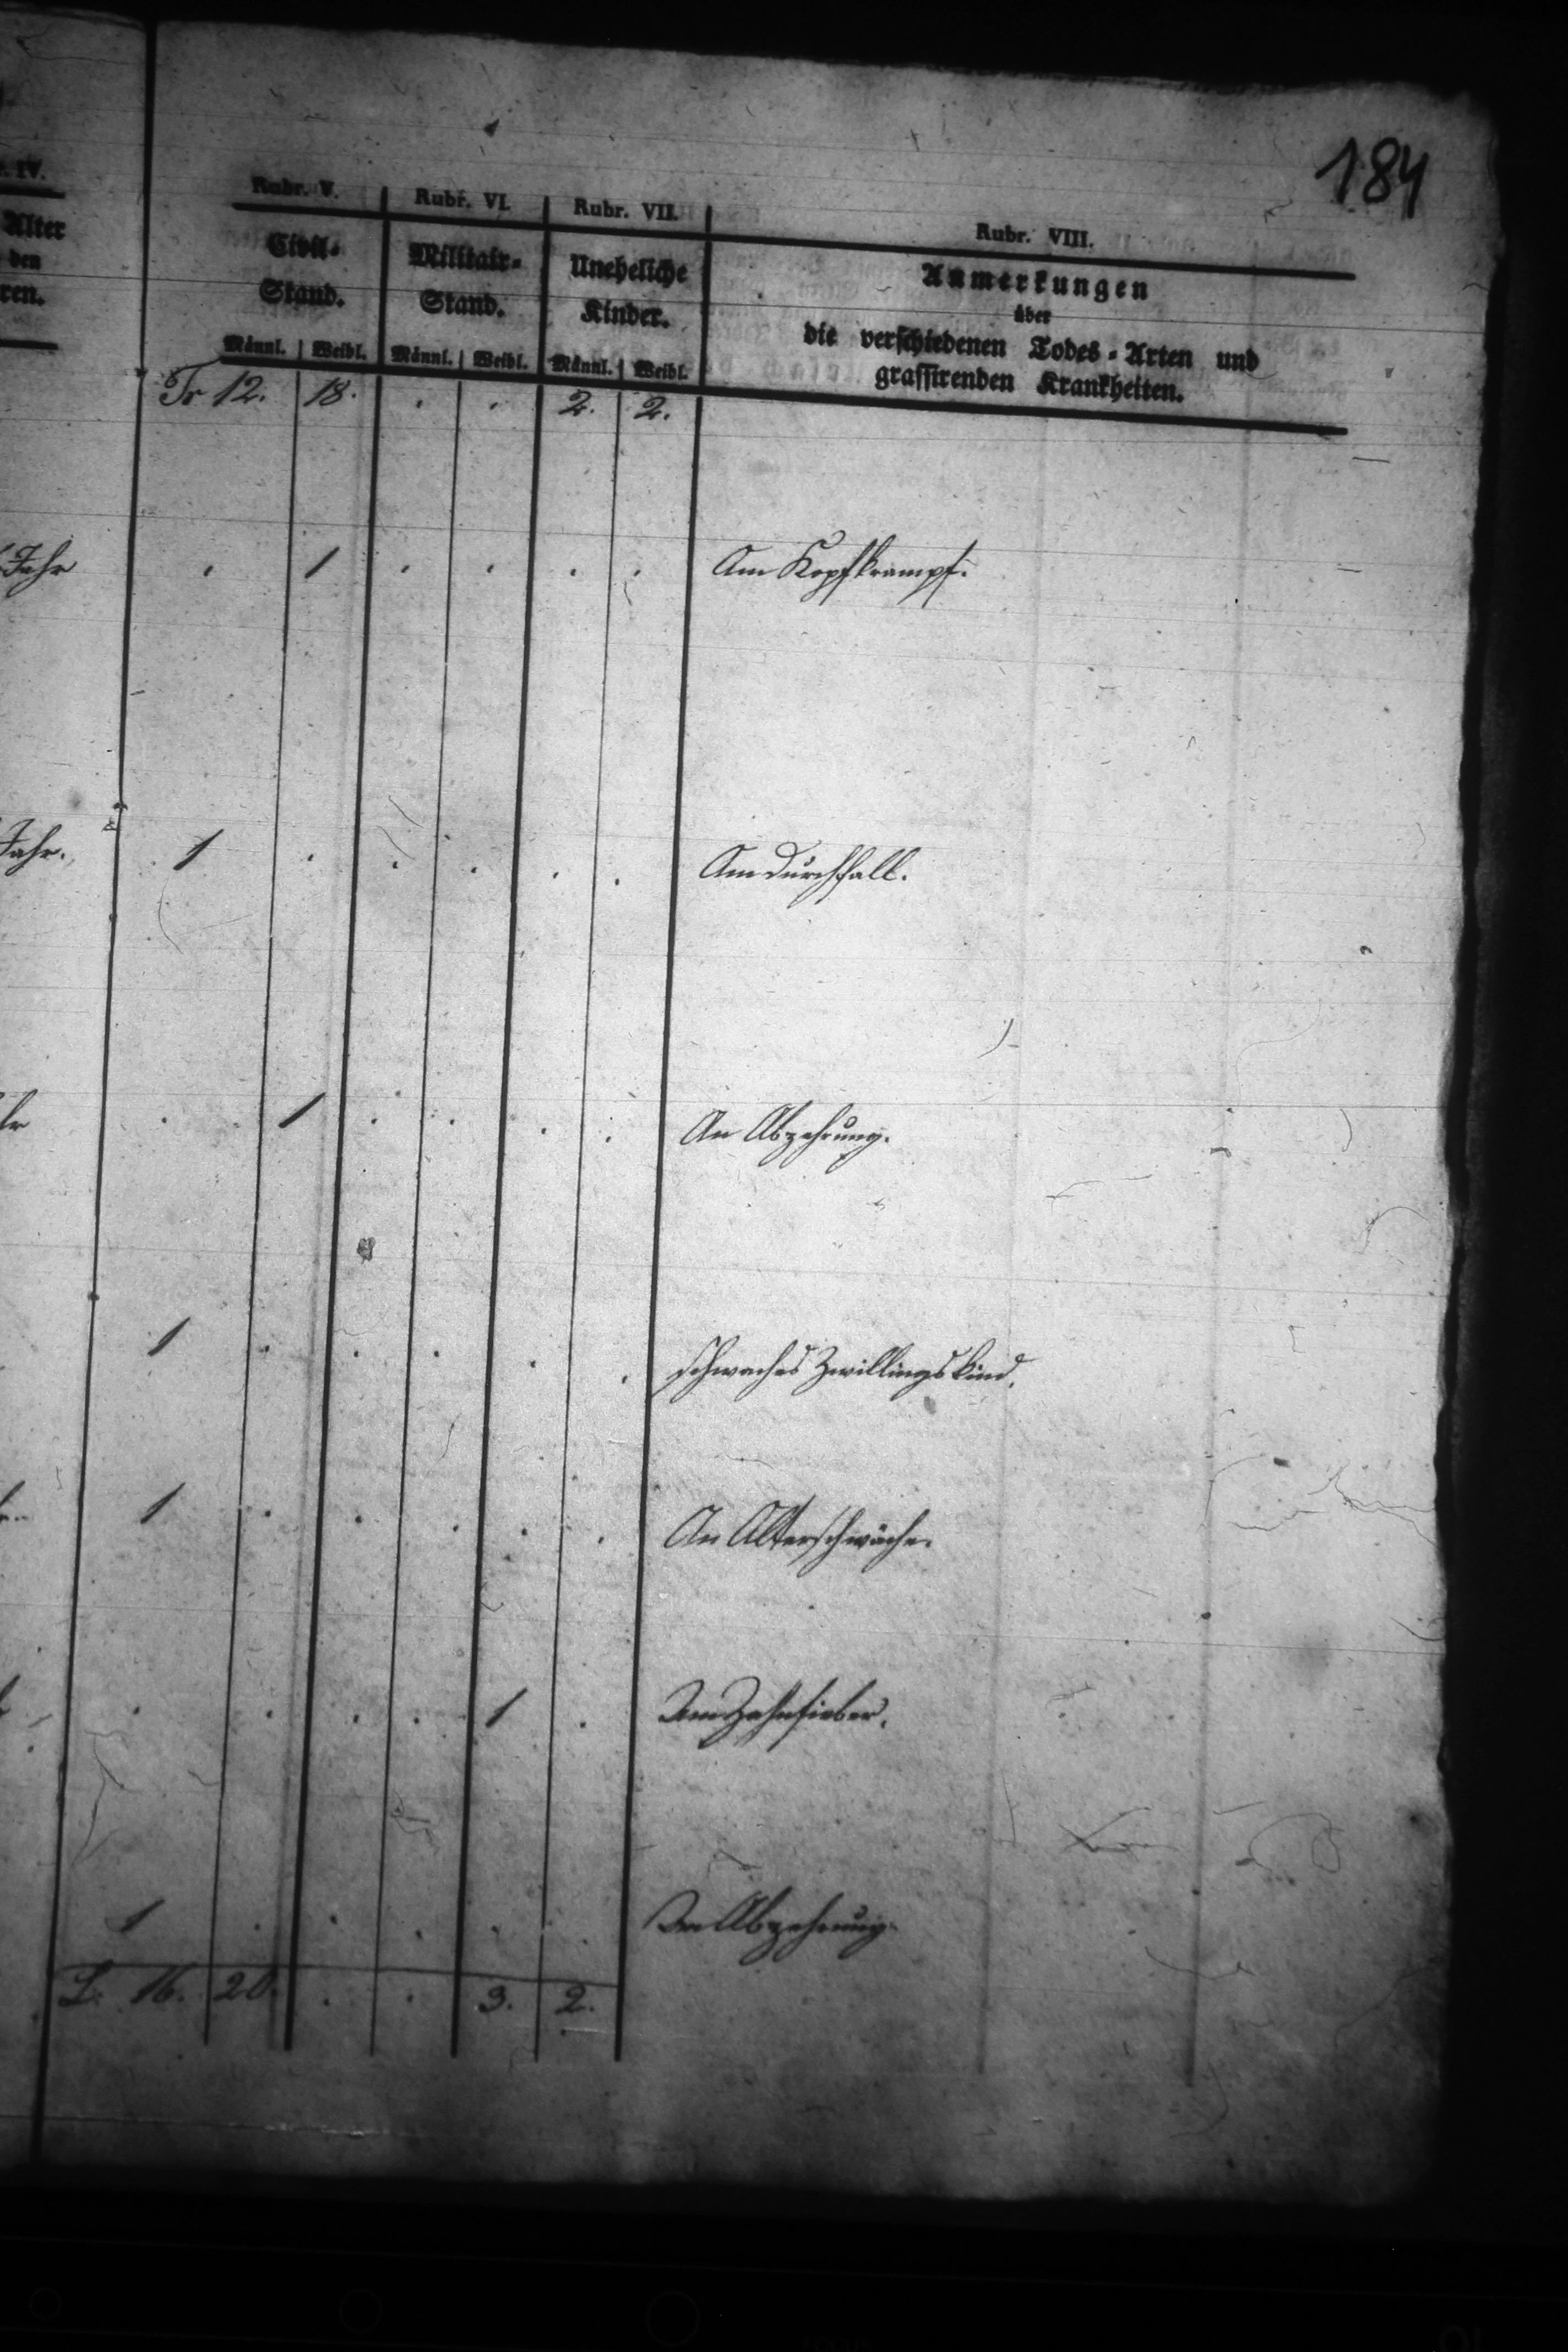 184
r. IV. Rubr. V. Rubr. VI. Rubr. VII. Rubr. VIII.
Alter Civil- Militair- Uneheliche Anmerkungen
den Stand. Stand. Kinder. über
ren. die verschiedenen Todes-Arten und
Männl. Weibl. Männl. Weibl. Männl. Weibl. grassirenden Krankheiten.
Tr 12. 18. . . 2. 2.
Jahr . 1 . . . . Am Kopfkrampf.
Jahr. 1 . . . . . Am Durchfall.
. 1 . . . . An Abzehrung.
1 . . . . . schwaches Zwillingskind.
1 . . . . . An Alterschwäche.
. . . . 1 . Am Zahnfieber.
1 . . . . . An Abzehrung.
L. 16. 20. . . 3. 2.